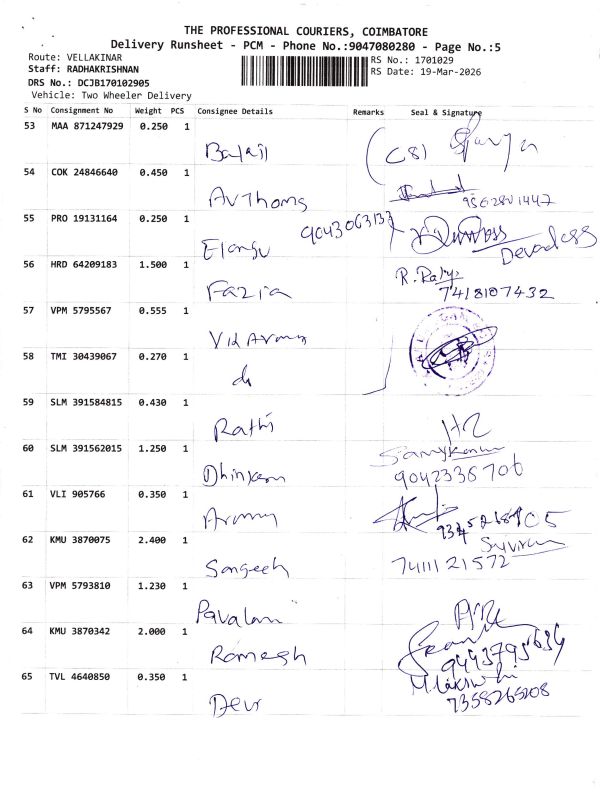 THE PROFESSIONAL COURIERS, COIMBATORE
Delivery Runsheet - PCM - Phone No.:9047080280 - Page No.:5
Route: VELLAKINAR
Staff: RADHAKRISHNAN
DRS No.: DCJB170102905
Vehicle: Two Wheeler Delivery
RS No.: 1701029
RS Date: 19-Mar-2026
S No Consignment No Weight PCS Consignee Details Remarks Seal & Signature
53 MAA 871247929 0.250 1
Balaji (C8)
54 COK 24846640 0.450 1
AVThoms
55 PRO 19131164 0.250 1
9043063137
Elango Devadoss
56 HRD 64209183 1.500 1
Fazia R. Raju
7418107432
57 VPM 5795567 0.555 1
58 TMI 30439067 0.270 1
do
59 SLM 391584815 0.430 1
Rathi
60 SLM 391562015 1.250 1
Samykannu
9042336706
61 VLI 905766 0.350 1
62 KMU 3870075 2.400 1
Sangeeh 7411121572
63 VPM 5793810 1.230 1
Pavalam
64 KMU 3870342 2.000 1
Ramesh 9443795634
65 TVL 4640850 0.350 1
Devi 7358265208